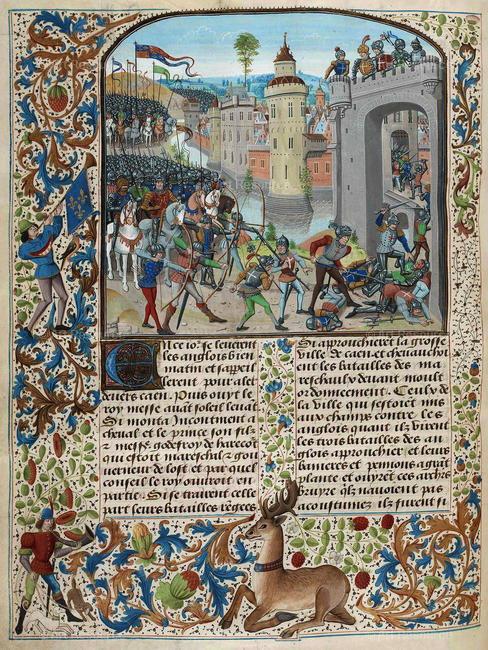 Cil ce io[r] se leverent
les anglois bien
matin et sappeil
lerent pour aler
vers caen. Puis ouyt le
roy messe avāt soleil levāt
Si monta Incontinent a
cheval et le prince son fil
z messe godefroy de harcot
qui estoit mareschal z gou
verneur de lost et par quel
conseil le roy ouvroit en
partie Si se trairent celle
part leurs batailles regees
Si approuchierēt la grosse
ville de caen et chevauchoi
ent les batailles des ma
reschaulx devant moult
ordonnement. Ceulx de
la ville qui sestoiēt mis
aux champs contre les
anglois quant ilz virent
les trois batailles des an
glois approuchier et leurs
banieres et penons
plante et ces archiers
quilz navoient pas
acoustumez ilz furent si